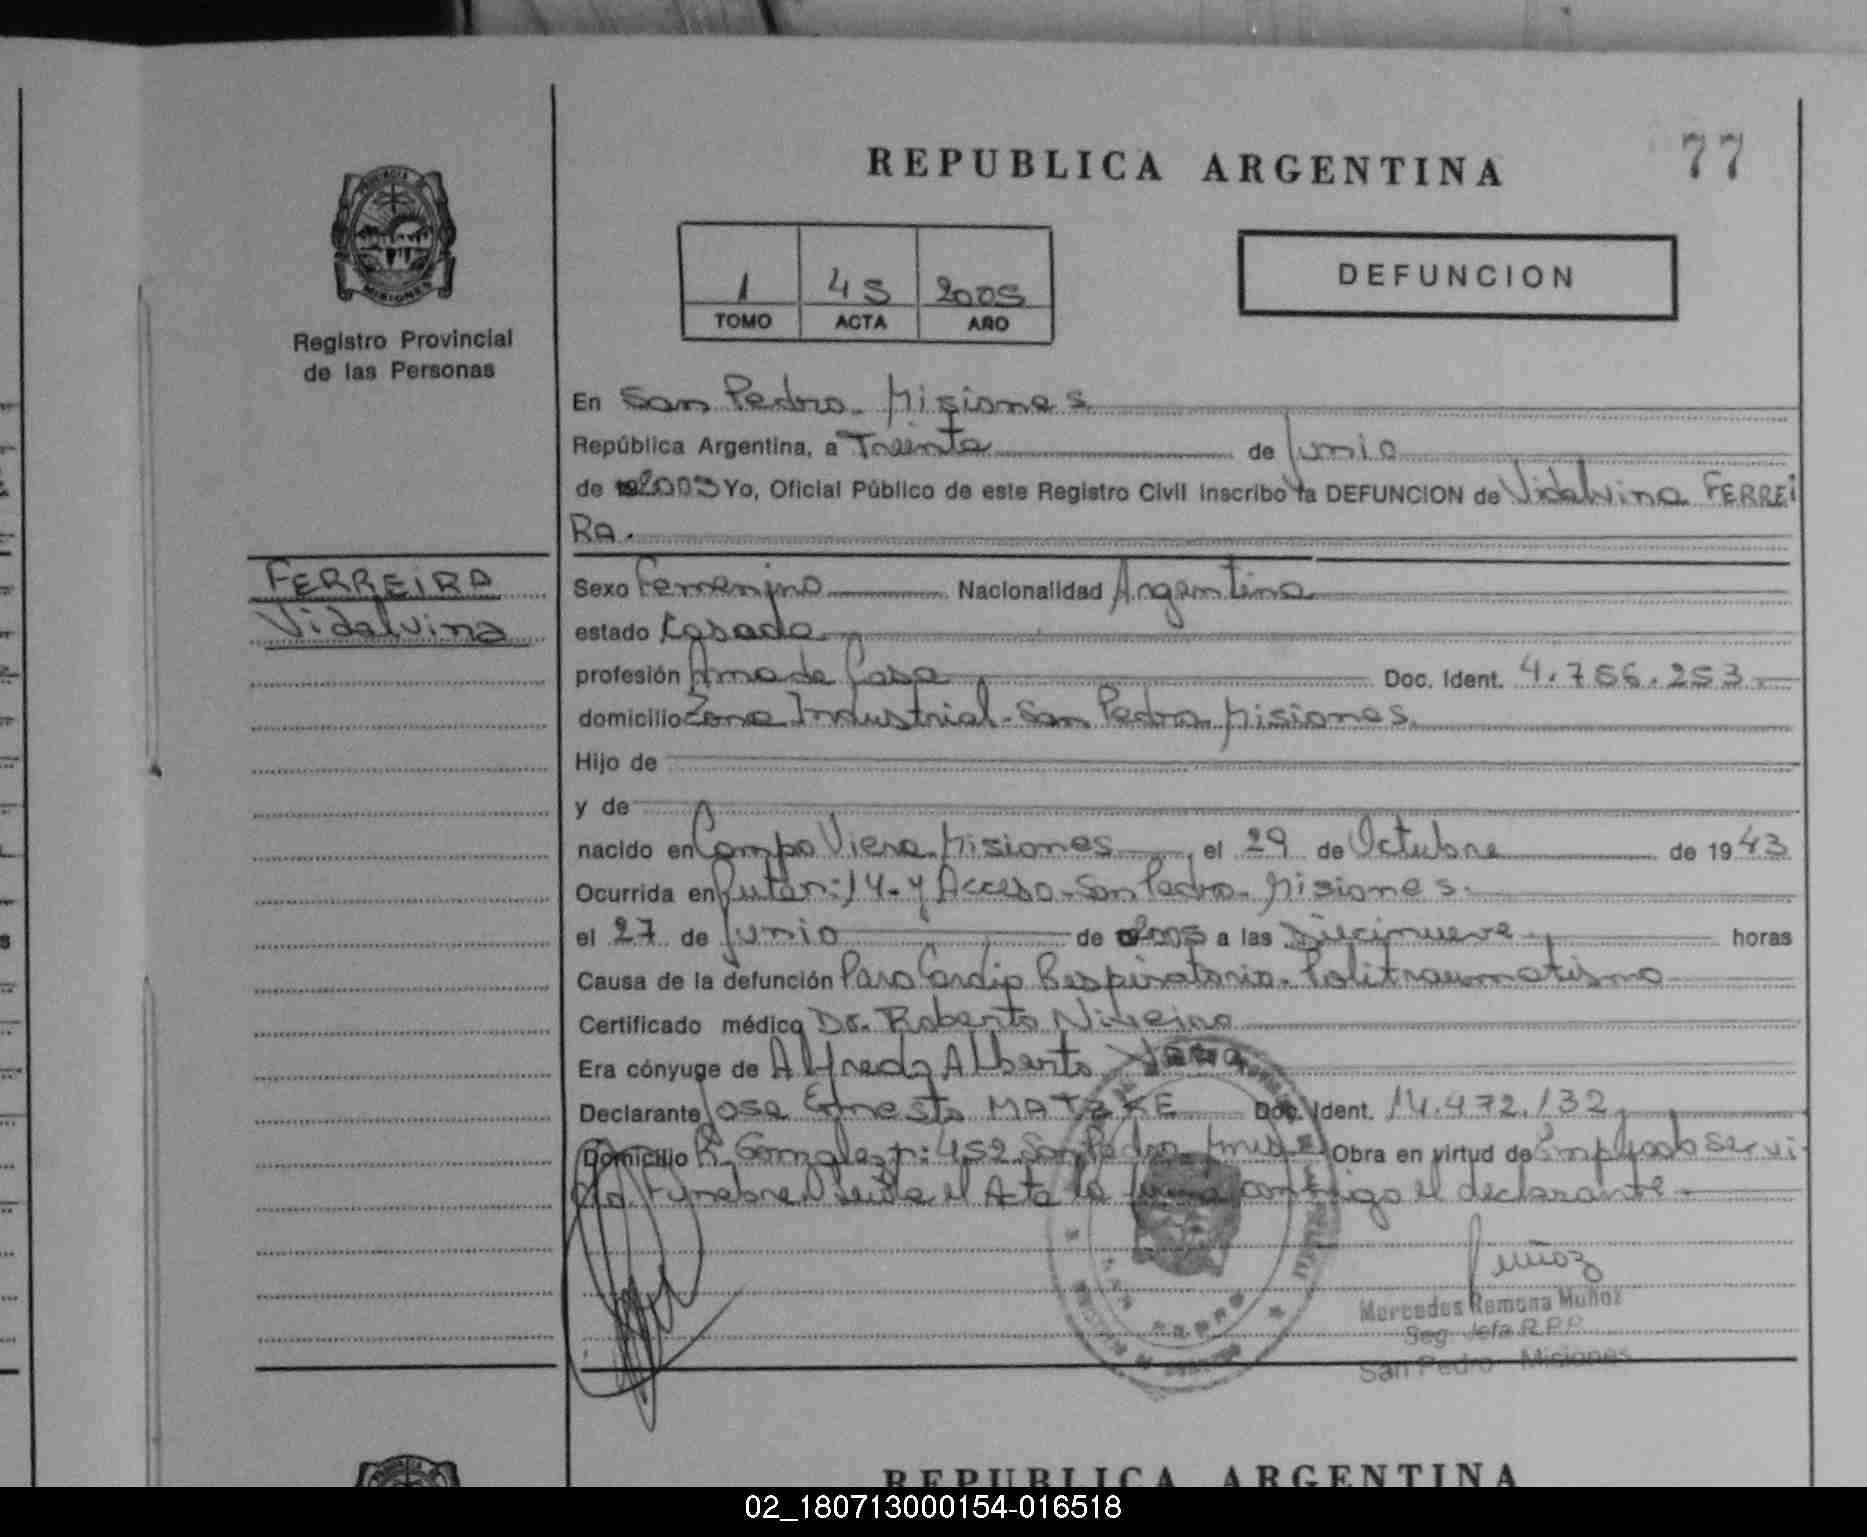 77
REPUBLICA ARGENTINA
PROVINCIA DE
MISIONES
Registro Provincial
de las Personas
1 45 2005
TOMO ACTA AÑO
DEFUNCION
En San Pedro - Misiones
República Argentina, a Treinta de Junio
de 2005 Yo, Oficial Público de este Registro Civil inscribo la DEFUNCION de Vidalvina FERREI
RA.
FERREIRA
Vidalvina
Sexo Femenino Nacionalidad Argentina
estado Casada
profesión Ama de Casa Doc. Ident. 4.756.253.-
domicilio Zona Industrial - San Pedro Misiones.
Hijo de
y de
nacido en Campo Viera Misiones el 29 de Octubre de 1943
Ocurrida en Ruta n: 14 - y Acceso - San Pedro - Misiones.
el 27 de Junio de 2005 a las Diecinueve horas
Causa de la defunción Paro Cardio Respiratorio - Politraumatismo
Certificado médico Dr. Roberto
Era cónyuge de Alfredo Alberto
Declarante Jose Ernesto MATZKE Doc. Ident. 14.472.132
Domicilio R. Gonzalez n: 452 San Pedro Obra en virtud de Empleado Servi
cio Funebre. Leida el Acta la firma conmigo el declarante.-
Muñoz
Mercedes Ramona Muñoz
Seg. Jefa R.P.P.
San Pedro - Misiones
REPUBLICA ARGENTINA
02_180713000154-016518